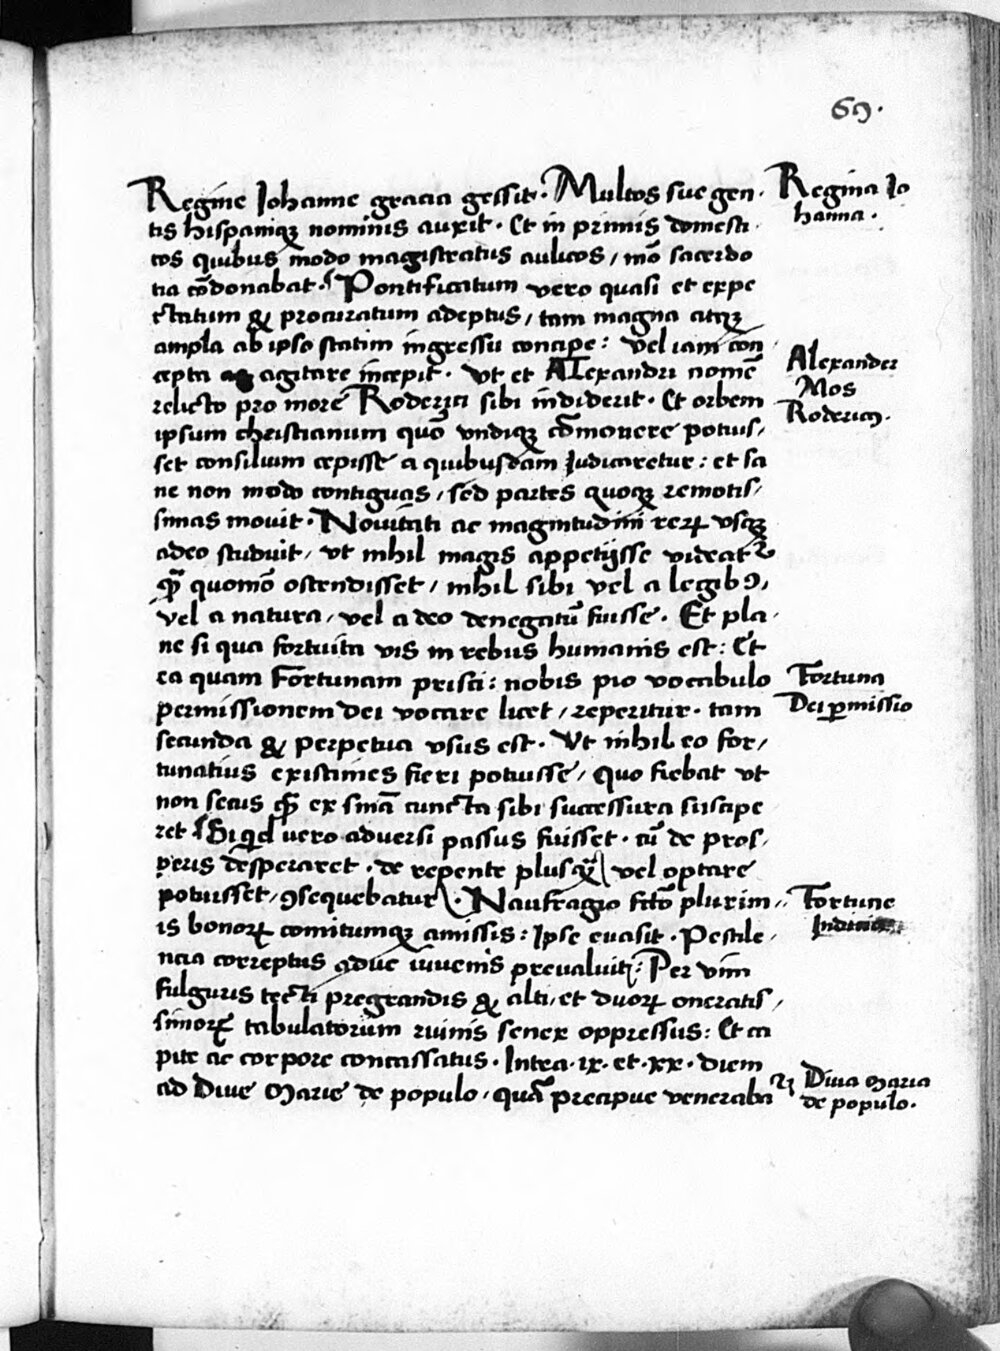 69.
Regine Johanne gracia gessit. Multos sue gen-
tis hispaniqꝫ nominis auxit. Et in primis domesti-
cos quibus modo magistratus aulicos, mõ sacerdo
tia cõdonabat. Pontificatum vero quasi et expe
ctatum & procuratum adeptus, tam magna atqꝫ
ampla ab ipso statim ingressu concipe: vel iam con-
cepta agitare incepit. Vt et Alexandri nomẽ
relicto pro more Roderici sibi indiderit. Et orbem
ipsum christianum quõ vndiqꝫ cõmouere potuis-
set consilium cepisse a quibusdam iudicaretur: et sa
ne non modo contiguas, sed partes quoqꝫ remotis-
simas mouit. Nouitati ac magnitudini reꝝ vsqꝫ
adeo studuit, vt nihil magis appetijsse videat
ꝙ̃ quomõ ostendisset, nihil sibi vel a legibꝯ,
vel a natura, vel a deo denegatũ fuisse. Et pla-
ne si qua fortuita vis in rebus humanis est: Et
ea quam Fortunam prisci: nobis pio vocabulo
permissionem dei vocare licet, reperitur. tam
secunda & perpetua vsus est. Vt nihil eo for-
tunatius existimes fieri potuisse, quo fiebat vt
non secus ꝙ̃ ex sniã cuncta sibi successura suscipe
ret. Si qd vero aduersi passus fuisset. cũ de pros-
peris desperaret. de repente plusꝙ̃ vel optare
potuisset, ꝯsequebatur. Naufragio fcõ plurim-
is bonoꝝ comitumqꝫ amissis: Ipse euasit. Pestile-
ncia correptus adue iuuenis preualuit: Per vim
fulguris tecti pregrandis & alti, et duoꝝ oneratis-
simoꝝ tabulatorum ruinis senex oppressus: Et ca
pite ac corpore concassatus. Intra. ix. et. xx. diem
ad Diue Marie de populo, quã precipue veneraba
Regina Jo
hanna.
Alexander
Mos
Rodericꝯ.
Fortuna
Dei ꝑmissio
Fortune
Diua Maria
de populo.